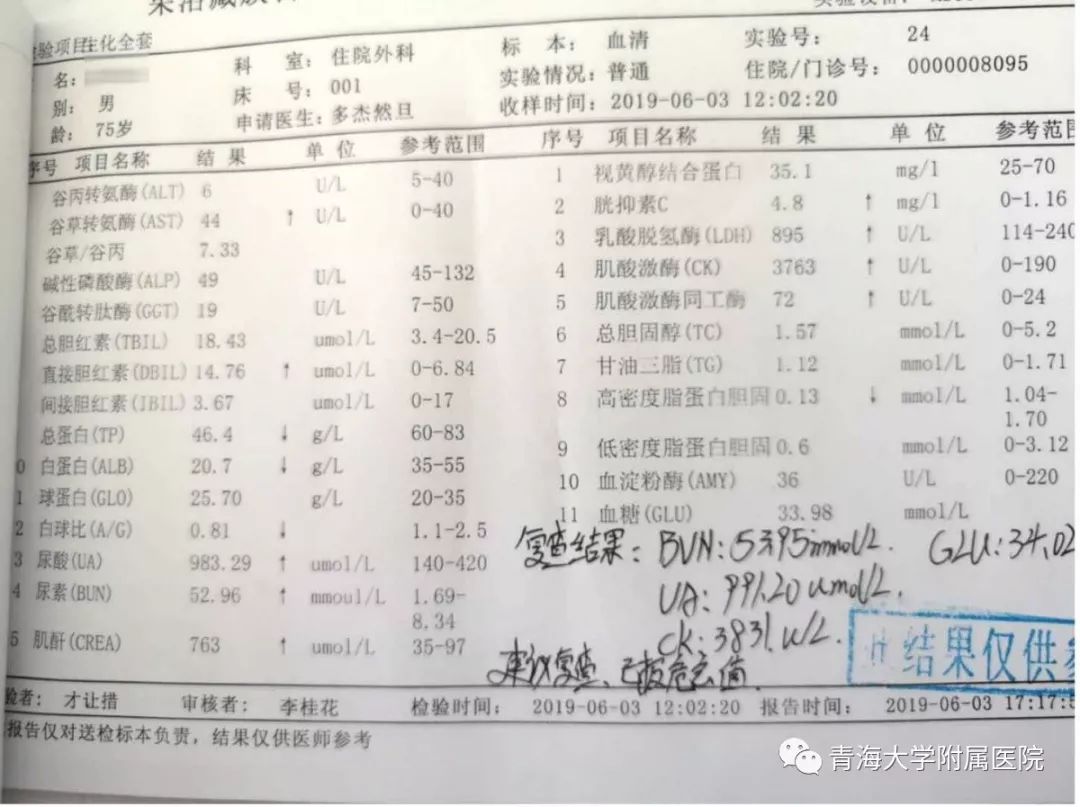 验项目 生化全套
名：
别：男
龄：75岁
科 室：住院外科
床 号：001
申请医生：多杰然旦
标 本：血清
实验情况：普通
收样时间：2019-06-03 12:02:20
实验号： 24
住院/门诊号： 0000008095
序号 项目名称 结 果 单 位 参考范围
谷丙转氨酶(ALT) 6 U/L 5-40
谷草转氨酶(AST) 44 ↑ U/L 0-40
谷草/谷丙 7.33
碱性磷酸酶(ALP) 49 U/L 45-132
谷酰转肽酶(GGT) 19 U/L 7-50
总胆红素(TBIL) 18.43 umol/L 3.4-20.5
直接胆红素(DBIL) 14.76 ↑ umol/L 0-6.84
间接胆红素(IBIL) 3.67 umol/L 0-17
总蛋白(TP) 46.4 ↓ g/L 60-83
0 白蛋白(ALB) 20.7 ↓ g/L 35-55
1 球蛋白(GLO) 25.70 g/L 20-35
2 白球比(A/G) 0.81 ↓ 1.1-2.5
3 尿酸(UA) 983.29 ↑ umol/L 140-420
4 尿素(BUN) 52.96 ↑ mmoul/L 1.69-
8.34
5 肌酐(CREA) 763 ↑ umol/L 35-97
序号 项目名称 结 果 单 位 参考范围
1 视黄醇结合蛋白 35.1 mg/l 25-70
2 胱抑素C 4.8 ↑ mg/l 0-1.16
3 乳酸脱氢酶(LDH) 895 ↑ U/L 114-240
4 肌酸激酶(CK) 3763 ↑ U/L 0-190
5 肌酸激酶同工酶 72 ↑ U/L 0-24
6 总胆固醇(TC) 1.57 mmol/L 0-5.2
7 甘油三脂(TG) 1.12 mmol/L 0-1.71
8 高密度脂蛋白胆固 0.13 ↓ mmol/L 1.04-
1.70
9 低密度脂蛋白胆固 0.6 mmol/L 0-3.12
10 血淀粉酶(AMY) 36 U/L 0-220
11 血糖(GLU) 33.98 mmol/L
复查结果：BUN: 53.95mmol/L. GLU: 34.02
UA: 991.20 umol/L.
CK: 3831 U/L.
建议复查、已报危急值.
结果仅供参
验者： 才让措 审核者： 李桂花 检验时间： 2019-06-03 12:02:20 报告时间： 2019-06-03 17:17:5
报告仅对送检标本负责，结果仅供医师参考
青海大学附属医院